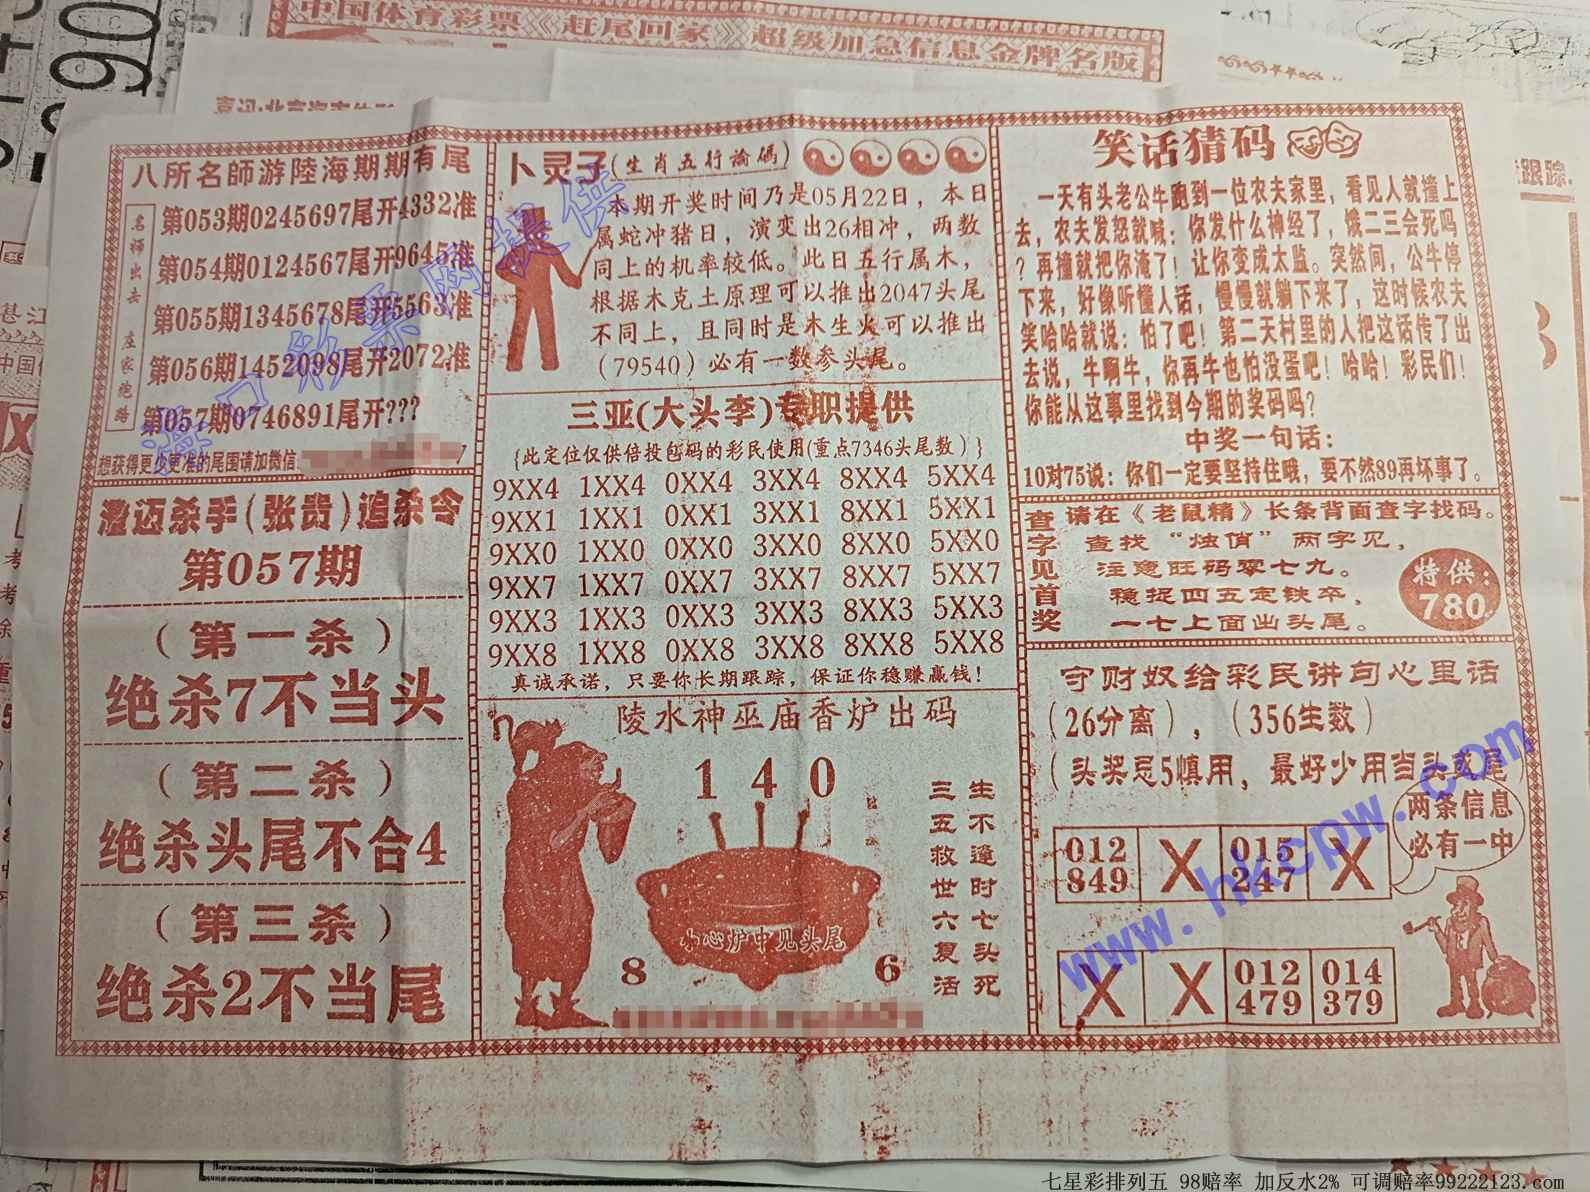 中国体育彩票《赶尾回家》超级加急信息金牌名版
八所名師游陸海期期有尾
名师出去 庄家跑路
第053期0245697尾开4332准
第054期0124567尾开9645准
第055期1345678尾开5563准
第056期1452098尾开2072准
第057期0746891尾开???
想获得更少更准的尾围请加微信
澄迈杀手(张贵)追杀令
第057期
(第一杀)
绝杀7不当头
(第二杀)
绝杀头尾不合4
(第三杀)
绝杀2不当尾
卜灵子(生肖五行论码)
本期开奖时间乃是05月22日，本日
属蛇冲猪日，演变出26相冲，两数
同上的机率较低。此日五行属木，
根据木克土原理可以推出2047头尾
不同上，且同时是木生火可以推出
(79540)必有一数参头尾。
三亚(大头李)专职提供
{此定位仅供倍投包码的彩民使用(重点7346头尾数)}
9XX4 1XX4 0XX4 3XX4 8XX4 5XX4
9XX1 1XX1 0XX1 3XX1 8XX1 5XX1
9XX0 1XX0 0XX0 3XX0 8XX0 5XX0
9XX7 1XX7 0XX7 3XX7 8XX7 5XX7
9XX3 1XX3 0XX3 3XX3 8XX3 5XX3
9XX8 1XX8 0XX8 3XX8 8XX8 5XX8
真诚承诺，只要你长期跟踪，保证你稳赚赢钱！
陵水神巫庙香炉出码
1 4 0
生不逢时七头死
三五救世六复活
小心炉中见头尾
8 6
笑话猜码
一天有头老公牛跑到一位农夫家里，看见人就撞上
去，农夫发怒就喊：你发什么神经了，饿二三会死吗
？再撞就把你淹了！让你变成太监。突然间，公牛停
下来，好像听懂人话，慢慢就躺下来了，这时候农夫
笑哈哈就说：怕了吧！第二天村里的人把这话传了出
去说，牛啊牛，你再牛也怕没蛋吧！哈哈！彩民们！
你能从这事里找到今期的奖码吗？
中奖一句话：
10对75说：你们一定要坚持住哦，要不然89再坏事了。
查字见首奖
请在《老鼠精》长条背面查字找码。
查找“烛俏”两字见，
注意旺码零七九。
稳捉四五定铁卒，
一七上面出头尾。
特供：
780
守财奴给彩民讲句心里话
(26分离)，(356生数)
(头奖忌5慎用，最好少用当头或尾)
两条信息
必有一中
012 X 015 X
849 247
X X 012 014
479 379
海口彩票网提供
www.hkcpw.com
七星彩排列五 98赔率 加反水2% 可调赔率99222123.com